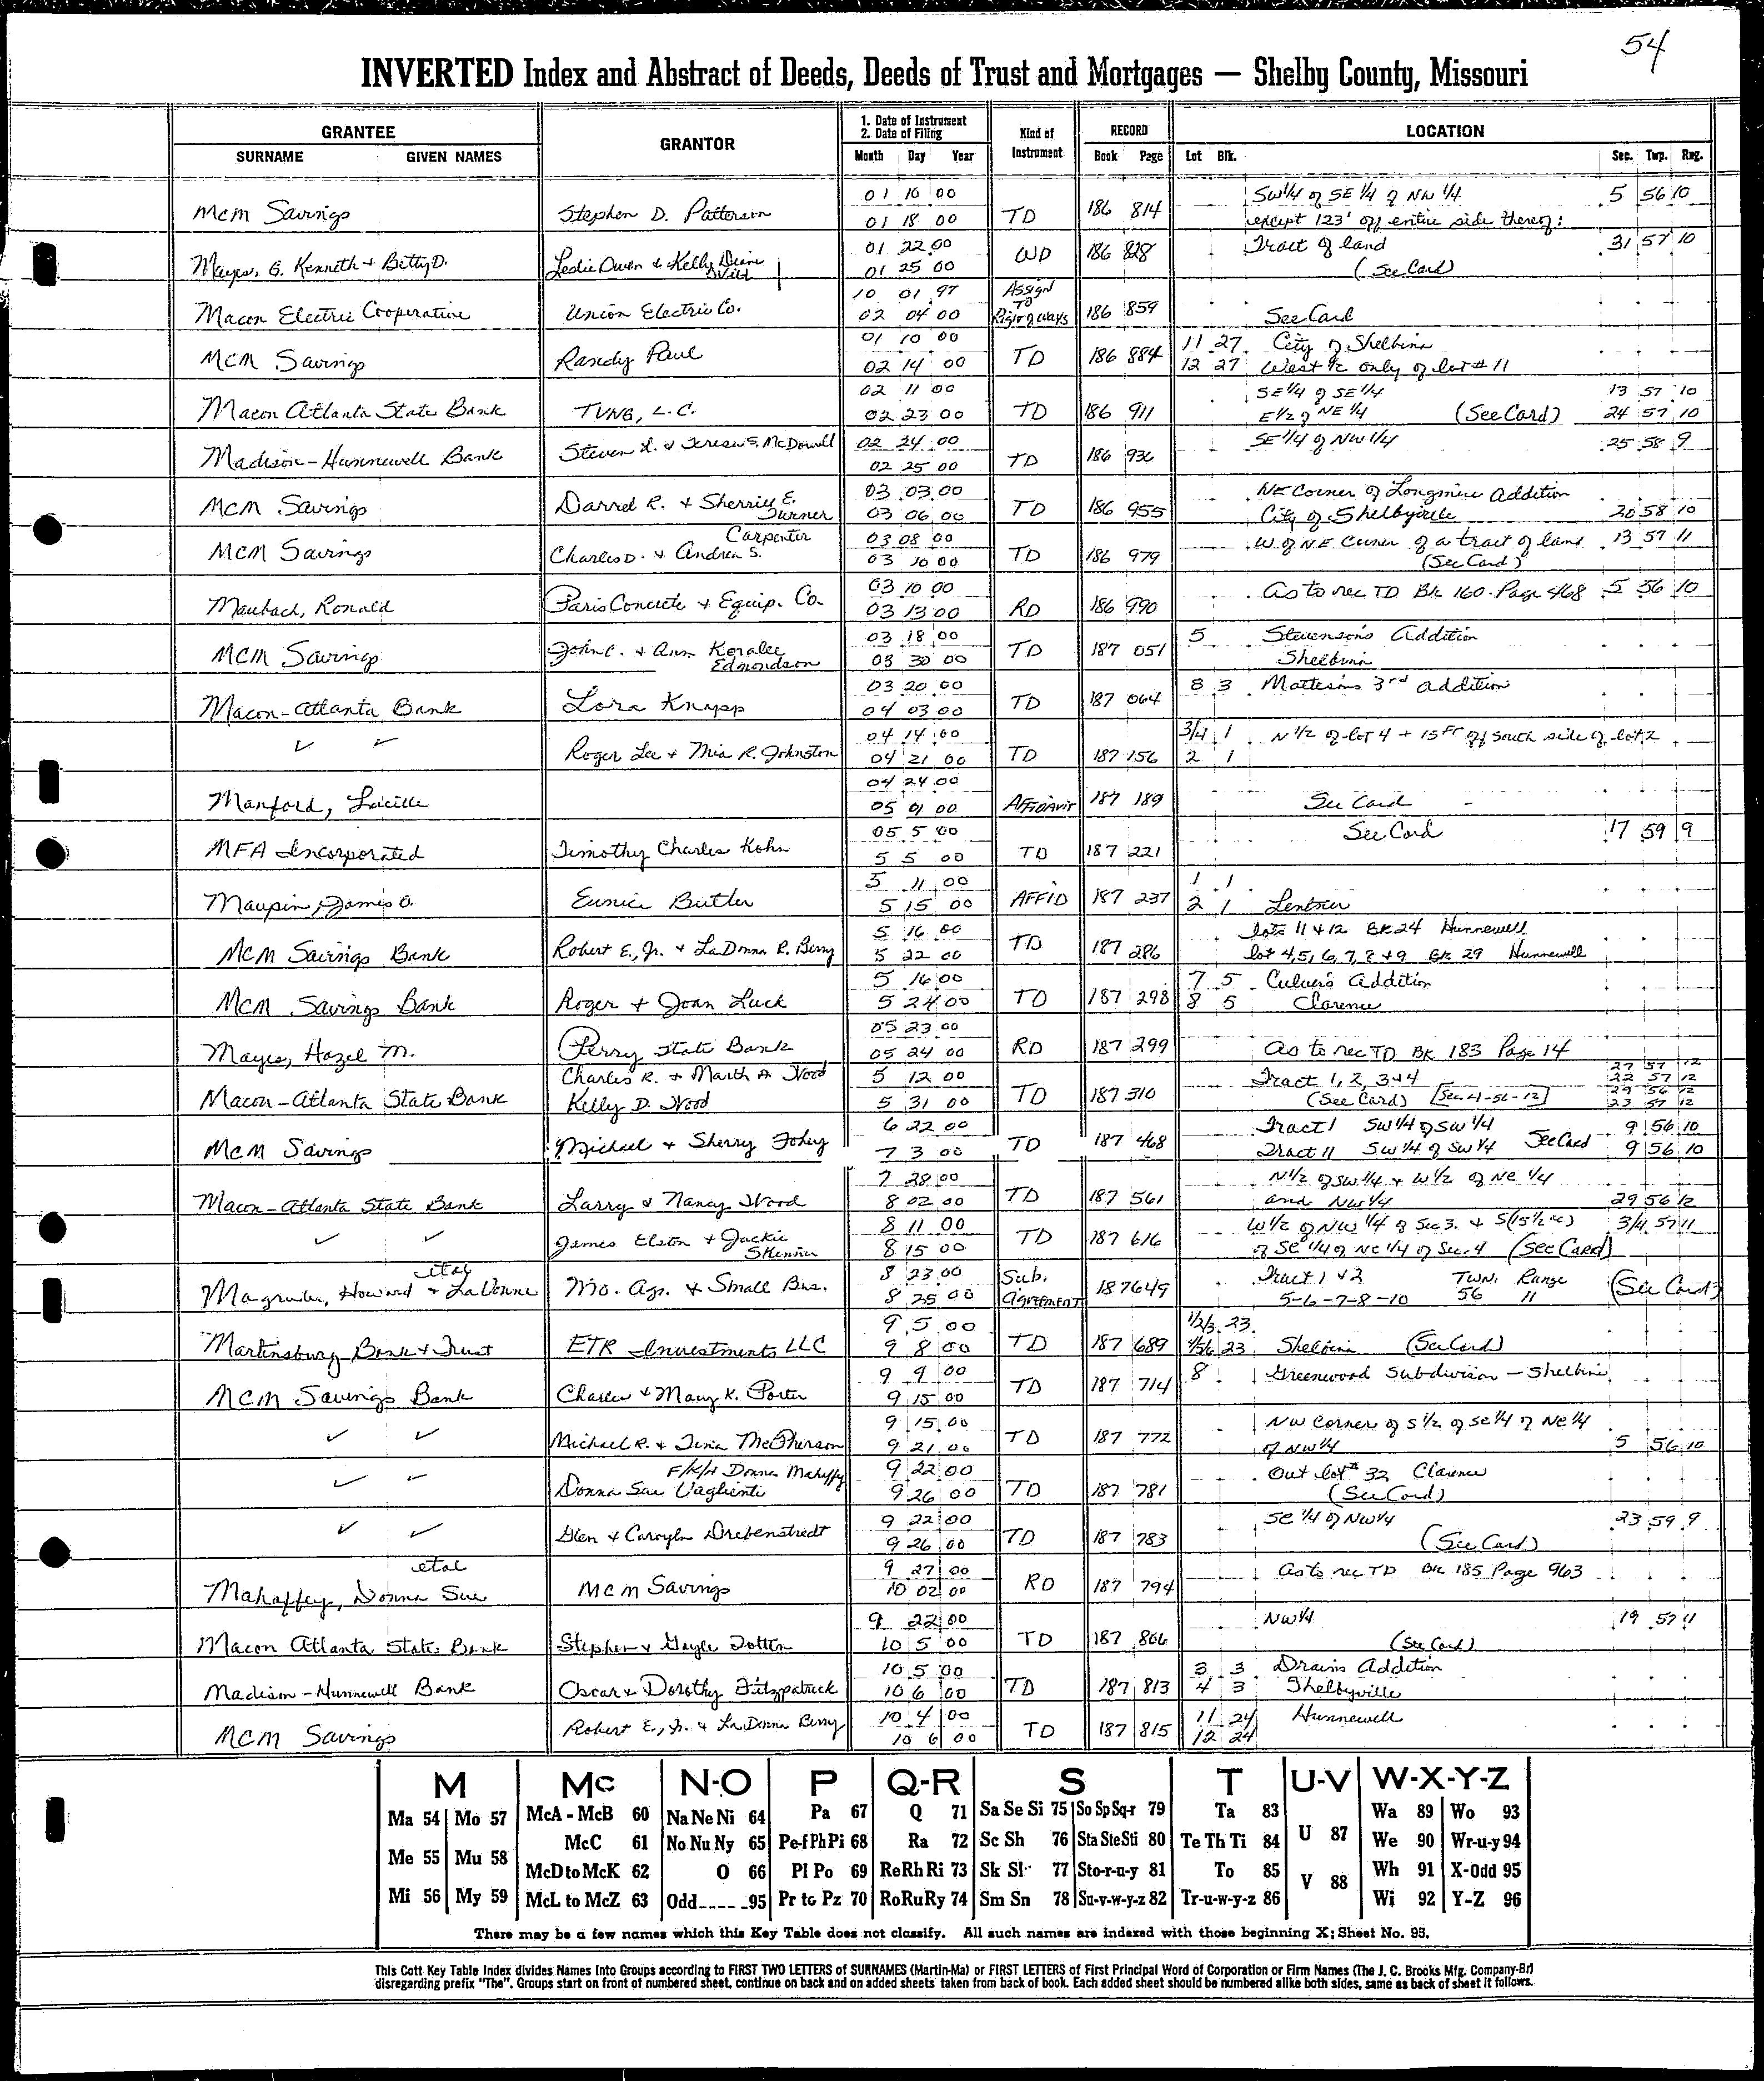 54
INVERTED Index and Abstract of Deeds, Deeds of Trust and Mortgages — Shelby County, Missouri
GRANTEE GRANTOR 1. Date of Instrument 2. Date of Filing Kind of Instrument RECORD LOCATION
SURNAME GIVEN NAMES Month Day Year Book Page Lot Blk. Sec. Twp. Rng.
01 10 00 SW 1/4 of SE 1/4 of NW 1/4 5 56 10
MCM Savings Stephen D. Patterson 01 18 00 TD 186 814 except 123' off entire side thereof:
01 22 00 Tract of land 31 57 10
Mayes, G. Kenneth & Betty D. Leslie Owen & Kelly Diane Wild 01 25 00 WD 186 828 (See Card)
10 01 97 Assign To
Macon Electric Cooperative Union Electric Co. 02 04 00 Right of Ways 186 859 See Card
01 10 00 11 27 City of Shelbina
MCM Savings Randy Paul 02 14 00 TD 186 884 12 27 West 1/2 only of lot # 11
02 11 00 SE 1/4 of SE 1/4 13 57 10
Macon Atlanta State Bank TVNB, L.C. 02 23 00 TD 186 911 E 1/2 of NE 1/4 (See Card) 24 57 10
Steven L. & Teresa S. McDowell 02 24 00 SE 1/4 of NW 1/4 25 58 9
Madison-Hunnewell Bank 02 25 00 TD 186 936
03 03 00 NE Corner of Longmire Addition
MCM Savings Darrel R. & Sherrill E. Turner 03 06 00 TD 186 955 City of Shelbyville 20 58 10
Carpenter 03 08 00 W of NE Corner of a tract of land 13 57 11
MCM Savings Charles D. & Andrea S. 03 10 00 TD 186 979 (See Card)
03 10 00 As to rec TD BK 160 Page 468 5 56 10
Maubach, Ronald Paris Concrete & Equip. Co. 03 13 00 RD 186 990
03 18 00 5 Stevenson's Addition
MCM Savings John C. & Ann Koralee Edmondson 03 30 00 TD 187 051 Shelbina
03 20 00 8 3 Matteson's 3rd addition
Macon-Atlanta Bank Lora Knapp 04 03 00 TD 187 064
✓ ✓ 04 14 00 3/4 1 N 1/2 of lot 4 + 15 FT off south side of lot 2
Roger Lee & Mia R. Johnston 04 21 00 TD 187 156 2 1
04 24 00
Manford, Lucille 05 01 00 AFFIDAVIT 187 189 See Card
05 5 00 See Card 17 59 9
MFA Incorporated Timothy Charles Kohn 5 5 00 TD 187 221
5 11 00 1 1
Maupin, James O. Eunice Butler 5 15 00 AFFID 187 237 2 1 Lentner
5 16 00 lots 11 & 12 BK 24 Hunnewell
MCM Savings Bank Robert E., Jr. & LaDonna R. Berry 5 22 00 TD 187 286 lot 4, 5, 6, 7, 8 & 9 BK 29 Hunnewell
5 16 00 7 5 Culver's Addition
MCM Savings Bank Roger & Joan Luck 5 24 00 TD 187 298 8 5 Clarence
05 23 00
Mayes, Hazel M. Perry State Bank 05 24 00 RD 187 299 As to rec TD BK 183 Page 14
Charles R. & Marth A Wood 5 12 00 Tract 1, 2, 3 & 4 27 57 12
22 57 12
Macon-Atlanta State Bank Kelly D. Wood 5 31 00 TD 187 310 (See Card) [Sec 4-56-12] 29 56 12
23 57 12
6 22 00 Tract I SW 1/4 of SW 1/4 9 56 10
MCM Savings Michael & Sherry Fohey 7 3 00 TD 187 468 Tract II SW 1/4 of SW 1/4 See Card 9 56 10
7 28 00 N 1/2 of SW 1/4 & W 1/2 of NE 1/4
Macon-Atlanta State Bank Larry & Nancy Wood 8 02 00 TD 187 561 and NW 1/4 29 56 12
8 11 00 W 1/2 of NW 1/4 of Sec 3. & S(15 1/2 ac) 3/4 57 11
✓ ✓ James Elston & Jackie Skinner 8 15 00 TD 187 616 of SE 1/4 of NE 1/4 of Sec. 4 (See Card)
etal 8 23 00 Sub. Tract 1 & 2 TWN. Range
Magruder, Howard & LaVonne Mo. Agr. & Small Bus. 8 25 00 Agreement 187 649 5-6-7-8-10 56 11 (See Card)
9 5 00 1/2/3 23
Martinsburg Bank & Trust ETR Investments LLC 9 8 00 TD 187 689 4/5/6 23 Shelbina (See Card)
9 9 00 8 Greenwood Subdivision - Shelbina
MCM Savings Bank Charles & Mary K. Porter 9 15 00 TD 187 714
9 15 00 NW Corner of S 1/2 of SE 1/4 of NE 1/4
✓ ✓ Michael R. & Tina McPherson 9 21 00 TD 187 772 of NW 1/4 5 56 10
F/K/A Donna Mahaffy 9 22 00 Out lot # 32 Clarence
✓ ✓ Donna Sue Vaglienti 9 26 00 TD 187 781 (See Card)
9 22 00 SE 1/4 of NW 1/4 23 59 9
✓ ✓ Glen & Carolyn Drebenstedt 9 26 00 TD 187 783 (See Card)
etal 9 27 00 As to rec TD BK 185 Page 963
Mahaffey, Donna Sue MCM Savings 10 02 00 RD 187 794
9 22 00 NW 1/4 19 57 11
Macon Atlanta State Bank Stephen & Gayle Totten 10 5 00 TD 187 806 (See Card)
10 5 00 3 3 Drains Addition
Madison-Hunnewell Bank Oscar & Dorothy Fitzpatrick 10 6 00 TD 187 813 4 3 Shelbyville
10 4 00 11 24 Hunnewell
MCM Savings Robert E., Jr. & LaDonna Berry 10 6 00 TD 187 815 12 24
M Mc N-O P Q-R S T U-V W-X-Y-Z
Ma 54 Mo 57 McA - McB 60 Na Ne Ni 64 Pa 67 Q 71 Sa Se Si 75 So Sp Sq-r 79 Ta 83 U 87 Wa 89 Wo 93
Me 55 Mu 58 McC 61 No Nu Ny 65 Pe-f Ph Pi 68 Ra 72 Sc Sh 76 Sta Ste Sti 80 Te Th Ti 84 We 90 Wr-u-y 94
McD to McK 62 O 66 Pl Po 69 Re Rh Ri 73 Sk Sl 77 Sto-r-u-y 81 To 85 V 88 Wh 91 X-Odd 95
Mi 56 My 59 McL to McZ 63 Odd 95 Pr to Pz 70 Ro Ru Ry 74 Sm Sn 78 Su-v-w-y-z 82 Tr-u-w-y-z 86 Wi 92 Y-Z 96
There may be a few names which this Key Table does not classify. All such names are indexed with those beginning X; Sheet No. 95.
This Cott Key Table Index divides Names into Groups according to FIRST TWO LETTERS of SURNAMES (Martin-Ma) or FIRST LETTERS of First Principal Word of Corporation or Firm Names (The J. C. Brooks Mfg. Company-Br)
disregarding prefix "The". Groups start on front of numbered sheet, continue on back and on added sheets taken from back of book. Each added sheet should be numbered alike both sides, same as back of sheet it follows.